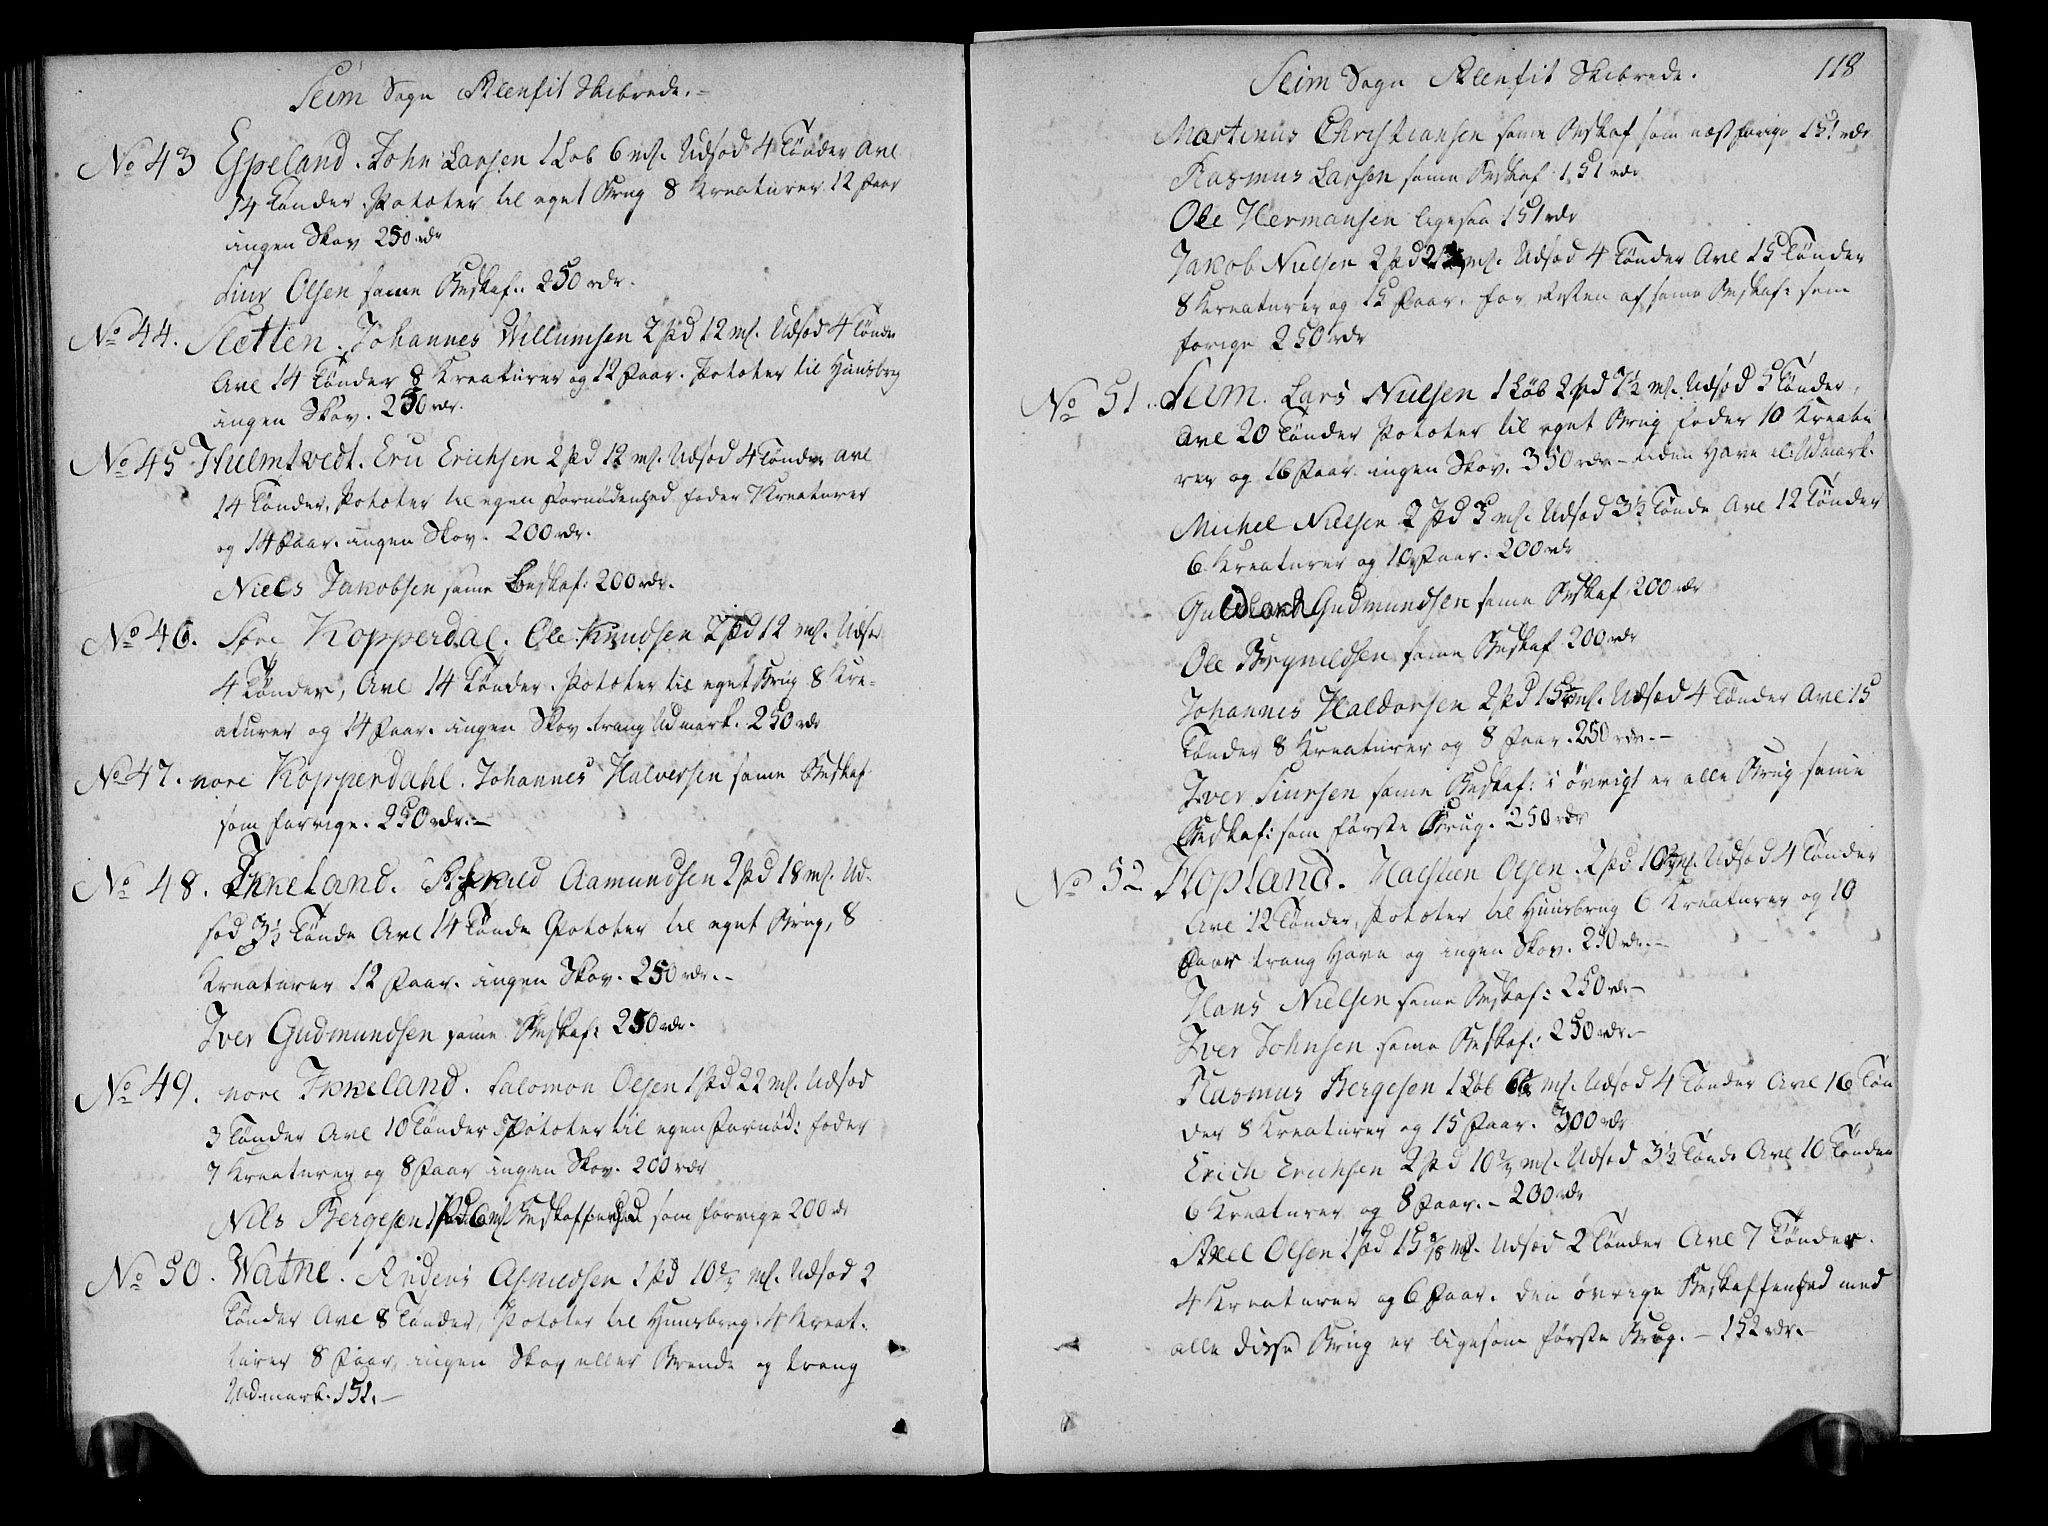 Seim Sogn Alenfit Skibrede.
No 43 Espeland. John Larsen 1 Løb 6 mk. Udsæd 4 Tønder Avl
14 Tønder, Potøter til eget Brug 8 Kreaturer 12 Faar
ingen Skov 250 rdr
Siur Olsen same Beskaf: 250 rdr.
No 44. Sletten. Johannes Willumsen 2 pd 12 mk. Udsæd 4 Tønder
Avl 14 Tønder 8 Kreaturer og 12 Faar. Potøter til Huusbrug
ingen Skov. 250 rdr.
No 45 Hielmtvedt. Eric Erichsen 2 pd 12 mk. Udsæd 4 Tønder Avl
14 Tønder, Potøter til egen Fornødenhed føder 7 Kreaturer
og 14 Faar. ingen Skov. 200 rdr.
Niels Jakobsen same Beskaf: 200 rdr.
No 46. Søre Kopperdal. Ole Knudsen 2 pd 12 mk. Udsæd
4 Tønder, Avl 14 Tønder. Potøter til eget Brug 8 Kre-
aturer og 14 Faar. ingen Skov trang Udmark. 250 rdr
No 47. nore Kopperdahl. Johannes Halversen same Beskaf
som forrige. 250 rdr.-
No 48. Ikkeland. Aamundsen 2 pd 18 mk. Ud-
sæd 3½ Tønde Avl 14 Tønde Potøter til eget Brug, 8
Kreaturer 12 Faar. ingen Skov. 250 rdr.-
Iver Gudmundsen same Beskaf: 250 rdr.
No 49. nore Ikkeland. Salomon Olsen 1 pd 22 mk. Udsæd
3 Tønder Avl 10 Tønder Potøter til egen Fornød: føder
7 Kreaturer og 8 Faar ingen Skov. 200 rdr
Nils Bergesen 1 pd 6 mk Beskaffenhed som forrige 200 rdr
No 50. Watne. Anders Asmudsen 1 pd 10 mk. Udsæd 2
Tønder Avl 8 Tønder, Potøter til Huusbrug. 4 Kreat-
turer 8 Faar, ingen Skov eller Brende og trang
Udmark. 151.-
Seim Sogn Alenfit Skibrede. 118
Martinus Christiansen same Beskaf som næst forige 151 rdr
Rasmus Larsen same Beskaf 151 rdr
Ole Hermansen ligesaa 151 rdr
Jakob Nielsen 2 pd mk. Udsæd 4 Tønder Avl 15 Tønder
8 Kreaturer og 15 Faar. for Resten af same Beskaf: som
forige 250 rdr
No 51. Seim. Lars Nielsen 1 Løb 2 pd 7½ mk. Udsæd 5 Tønder,
Avl 20 Tønder Potøter til eget Brug føder 10 Kreatu
rer og 16 Faar. ingen Skov. 350 rdr - liden Have el: Udmark.
Michel Nielsen 2 pd 5 mk. Udsæd 3½ Tønde Avl 12 Tønder
6 Kreaturer og 10 Faar. 200 rdr
Guldbrand Gudmundsen same Beskaf 200 rdr
Ole Brynildsen same Beskaf 200 rdr
Johannes Haldorsen 2 pd 15 mk. Udsæd 4 Tønder Avl 15
Tønder 8 Kreaturer og 8 Faar. 250 rdr.-
Iver Siursen same Beskaf: i øvrigt er alle Brug same
Beskaf: som første Brug. 250 rdr
No 52 Hopland. Halstien Olsen. 2 pd 10 mk. Udsæd 4 Tønder
Avl 12 Tønder, Potøter til Huusbrug 6 Kreaturer og 10
Faar trang Have og ingen Skov. 250 rdr.-
Hans Nielsen same Beskaf: 250 rdr-
Iver Johnsen same Beskaf: 250 rdr.-
Rasmus Bergesen 1 Løb mk. Udsæd 4 Tønder Avl 16 Tøn
der 8 Kreaturer og 15 Faar. 300 rdr
Erich Erichsen 2 pd 10 mk. Udsæd 3½ Tønde Avl 10 Tønder
6 Kreaturer og 8 Faar. - 200 rdr
Axel Olsen 1 pd 15 mk. Udsæd 2 Tønder Avl 7 Tønder.
4 Kreaturer og 6 Faar. Den øvrige Beskaffenhed med
alle disse Brug er ligesom første Brug. - 152 rdr.-